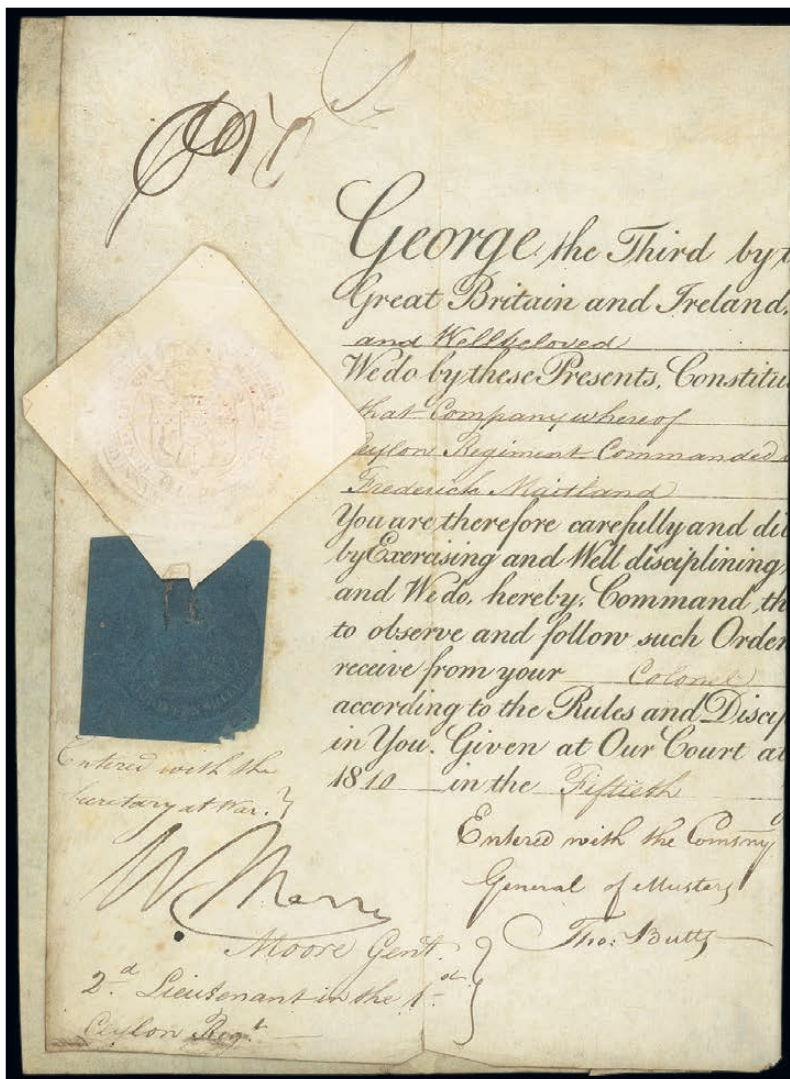 George the Third by t
Great Britain and Ireland,
and Wellbeloved
We do by these Presents, Constitu
that Company whereof
Ceylon Regiment Commanded
Frederick Maitland
You are therefore carefully and dil
by Exercising and Well disciplining,
and We do, hereby, Command, th
to observe and follow such Order
receive from your Colonel
according to the Rules and Discip
in You. Given at Our Court at
1810 in the Fiftieth
Entered with the
Secretary at War. }
Entered with the
General of Musters
Tho: Butts
Moore Gent.
2.d Lieutenant in the
Ceylon Regt.